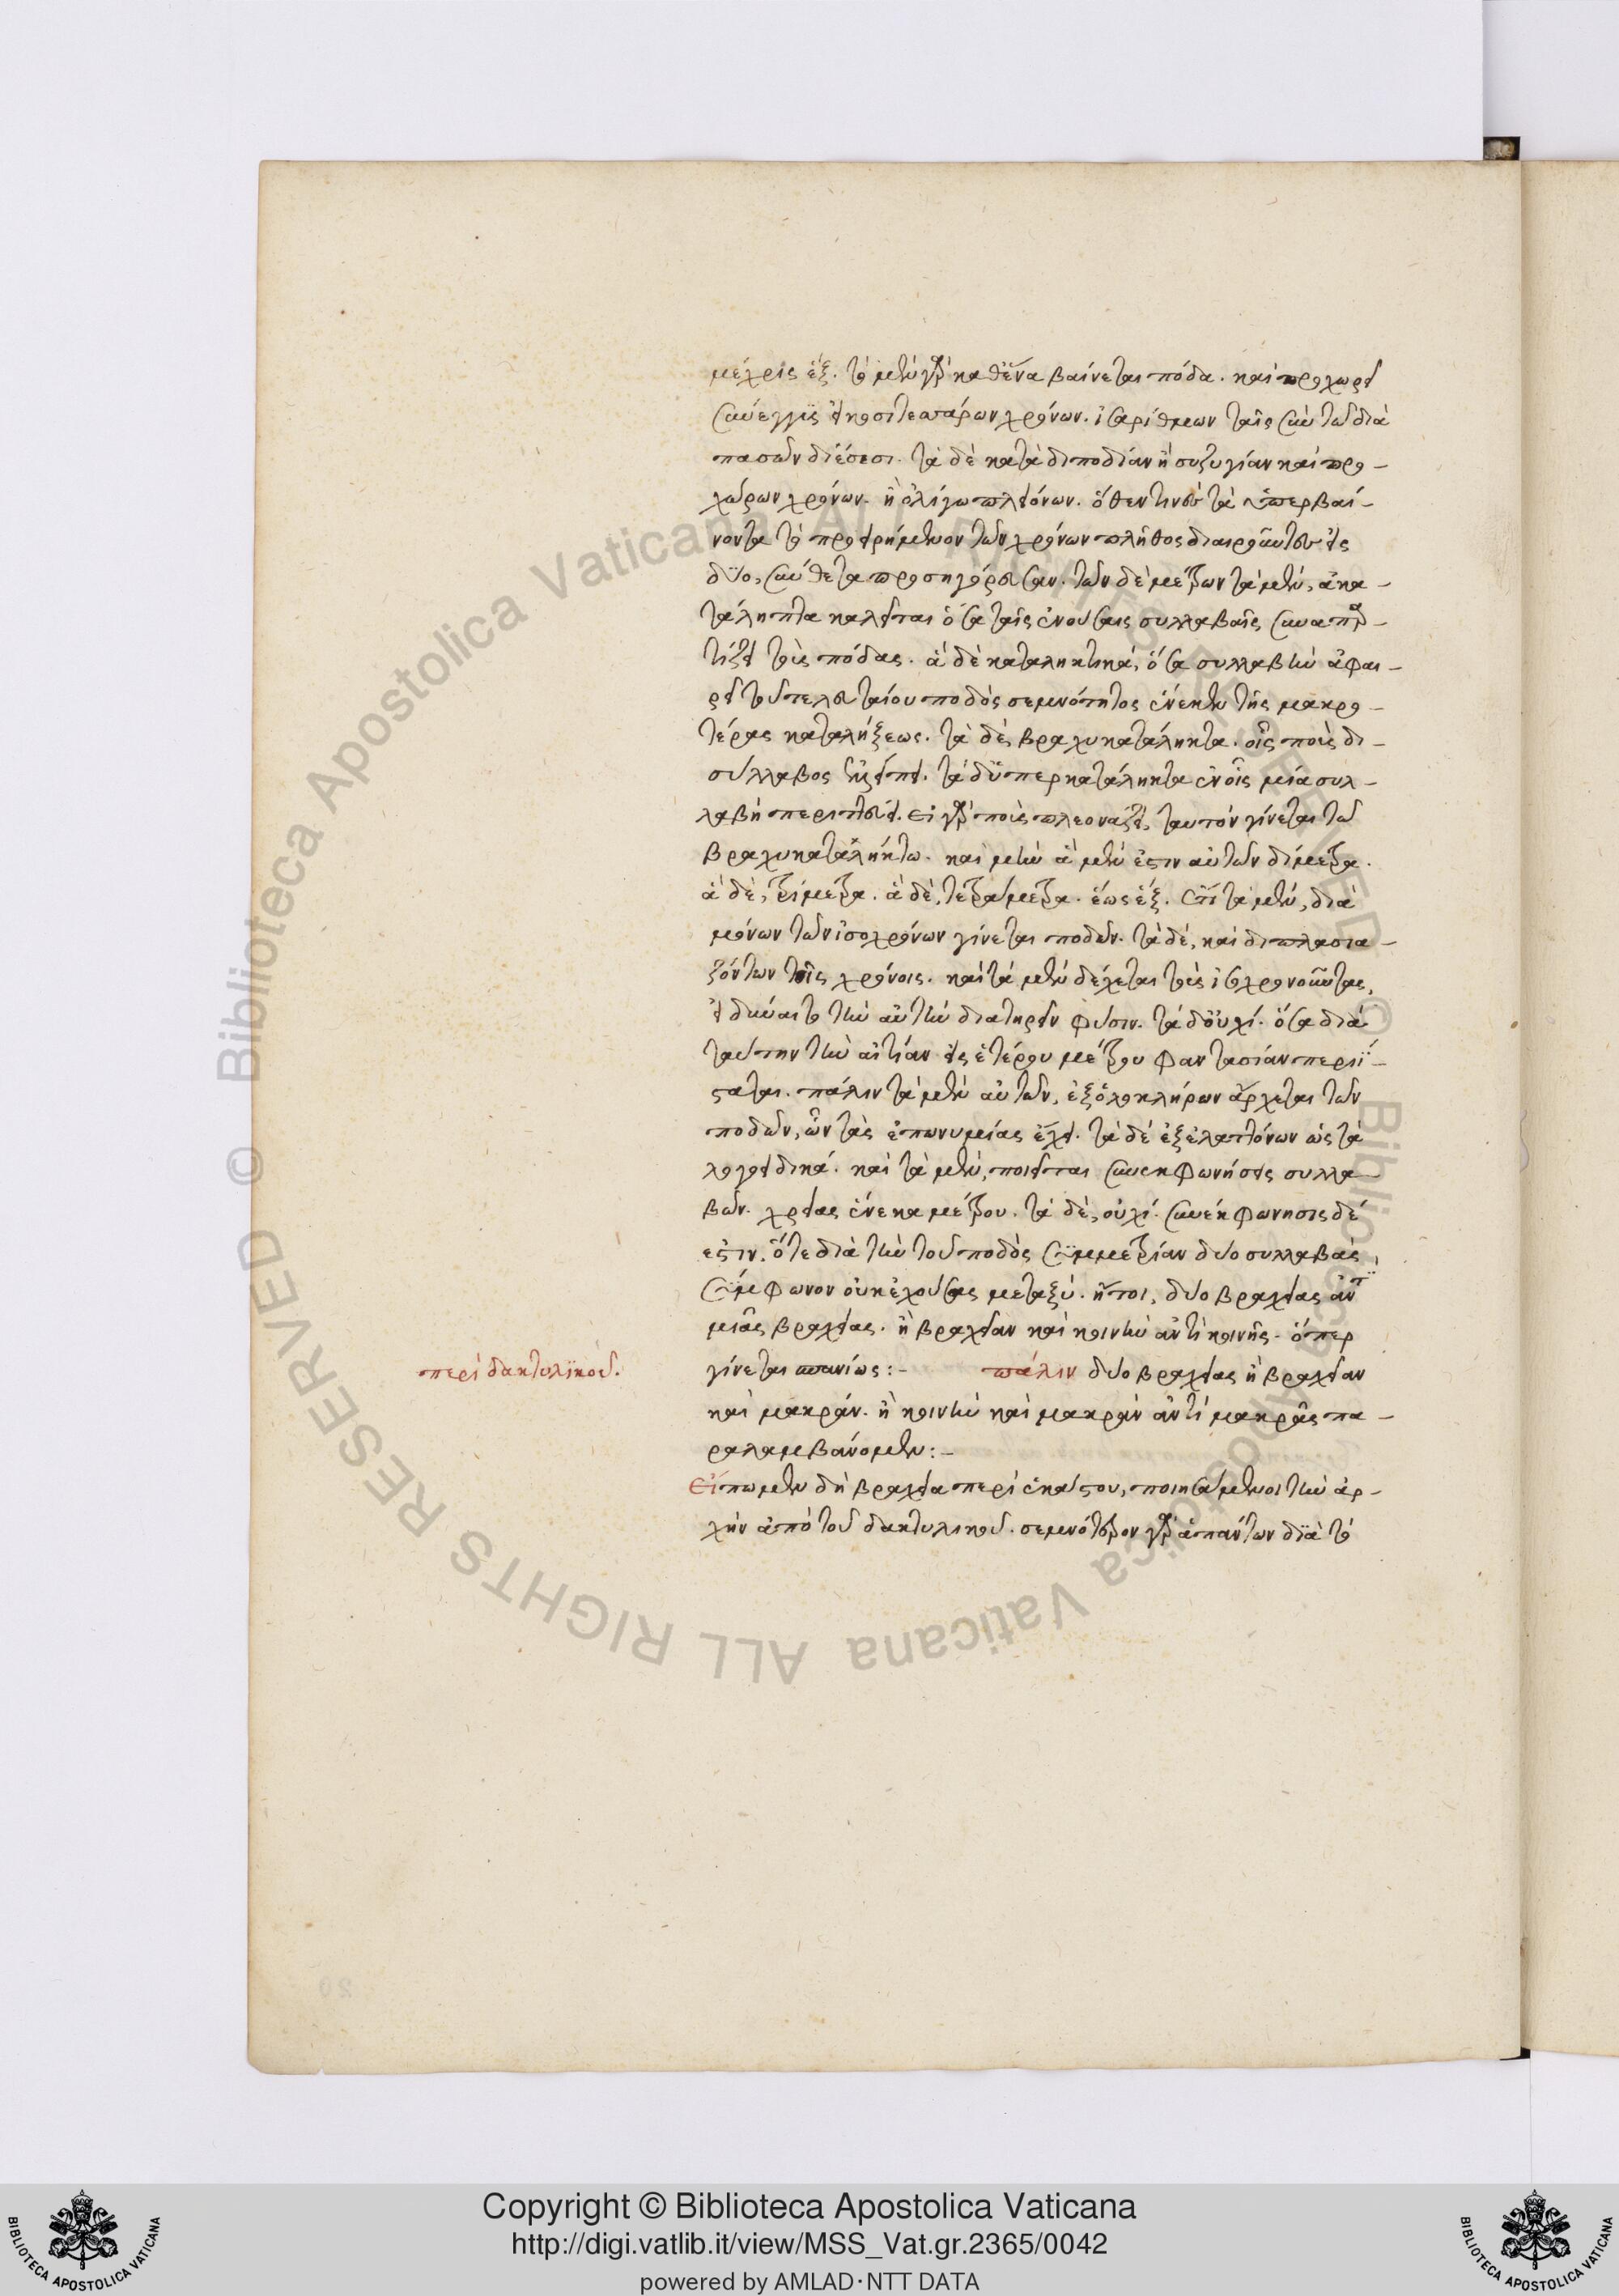 μέχρις ἕξ. τὸ μὲν γὰρ καθ' ἕνα βαίνεται πόδα. καὶ προχωρεῖ
συνεγγὺς εἰκοσιτεσσάρων χρόνων. ἰσαρίθμων ταῖς ἐν τῶ διὰ
πασῶν διέσεσι. τὰ δὲ κατὰ διποδίαν ἢ συζυγίαν καὶ προ-
χώρων χρόνων. ἢ ὀλίγω πλειόνων. ὅθεν τινὲς τὰ ὑπερβαί-
νοντα τὸ προειρημένον τῶν χρόνων πλῆθος διαιροῦντες εἰς
δύο, σύνθετα προσηγόρευσαν. τῶν δὲ μέτρων τὰ μὲν, ἀκα-
τάληπτα καλεῖται ὅσα ταῖς ἐνούσαις συλλαβαῖς συναπαρ-
τίζει τοὺς πόδας. ἃ δὲ καταληκτικά, ὅσα συλλαβὴν ἀφαι-
ρεῖ τοῦ τελευταίου ποδὸς σεμνότητος ἕνεκεν τῆς μακρο-
τέρας καταλήξεως. τὰ δὲ, βραχυκατάληκτα. οἷς ποὺς δι-
σύλλαβος λείπει. τὰ δ' ὑπερκατάληκτα ἐν οἷς μία συλ-
λαβὴ περιττεύει. εἰ γὰρ ποὺς πλεονάζει, ταυτὸν γίνεται τῶ
βραχυκαταλήκτω. καὶ μὴν ἃ μέν ἐστιν αὐτῶν δίμετρα.
ἃ δὲ, τρίμετρα. ἃ δὲ, τετράμετρα. ἕως ἕξ. ἔτι τὰ μὲν, διὰ
μόνων τῶν ἰσοχρόνων γίνεται ποδῶν. τὰ δέ, καὶ διπλασια-
ζόντων τοῖς χρόνοις. καὶ τὰ μὲν δέχεται τοὺς ἰσοχρονοῦντας,
εἰ δύναιτο τὴν αὐτὴν διατηρεῖν φύσιν. τὰ δ' οὐχί. ὅσα διὰ
ταύτην τὴν αἰτίαν εἰς ἑτέρου μέτρου φαντασίαν περιΐ-
σταται. πάλιν τὰ μὲν αὐτῶν, ἐξ ὁλοκλήρων ἄρχεται τῶν
ποδῶν, ὧν τὰς ἐπωνυμίας ἔχει. τὰ δὲ ἐξ ἐλαττόνων ὡς τὰ
λογαειδικά. καὶ τὰ μὲν, ποιεῖται συνεκφωνήσεις συλλα-
βῶν. χρείας ἕνεκα μέτρου. τὰ δὲ, οὐχί. συνεκφώνησις δέ
ἐστιν, ὅτε διὰ τὴν τοῦ ποδὸς συμμετρίαν δύο συλλαβὰς
σύμφωνον οὐκ ἐχούσας μεταξύ. ἤτοι, δύο βραχείας ἀντὶ
μιᾶς βραχείας. ἢ βραχεῖαν καὶ κοινὴν ἀντὶ κοινῆς. ὅπερ
γίνεται σπανίως:- πάλιν δύο βραχείας ἢ βραχεῖαν
περὶ δακτυλικοῦ.
καὶ μακράν. ἢ κοινὴν καὶ μακρὰν ἀντὶ μακρᾶς πα-
ραλαμβάνομεν:-
Εἴπωμεν δὴ βραχέα περὶ ἑκάστου, ποιησάμενοι τὴν ἀρ-
χὴν ἀπὸ τοῦ δακτυλικοῦ. σεμνότερον γὰρ ἁπάντων διὰ τὸ
Copyright © Biblioteca Apostolica Vaticana
http://digi.vatlib.it/view/MSS_Vat.gr.2365/0042
powered by AMLAD·NTT DATA
BIBLIOTECA APOSTOLICA VATICANA
BIBLIOTECA APOSTOLICA VATICANA
© Biblioteca Apostolica Vaticana ALL RIGHTS RESERVED
© Biblioteca Apostolica Vaticana ALL RIGHTS RESERVED
20